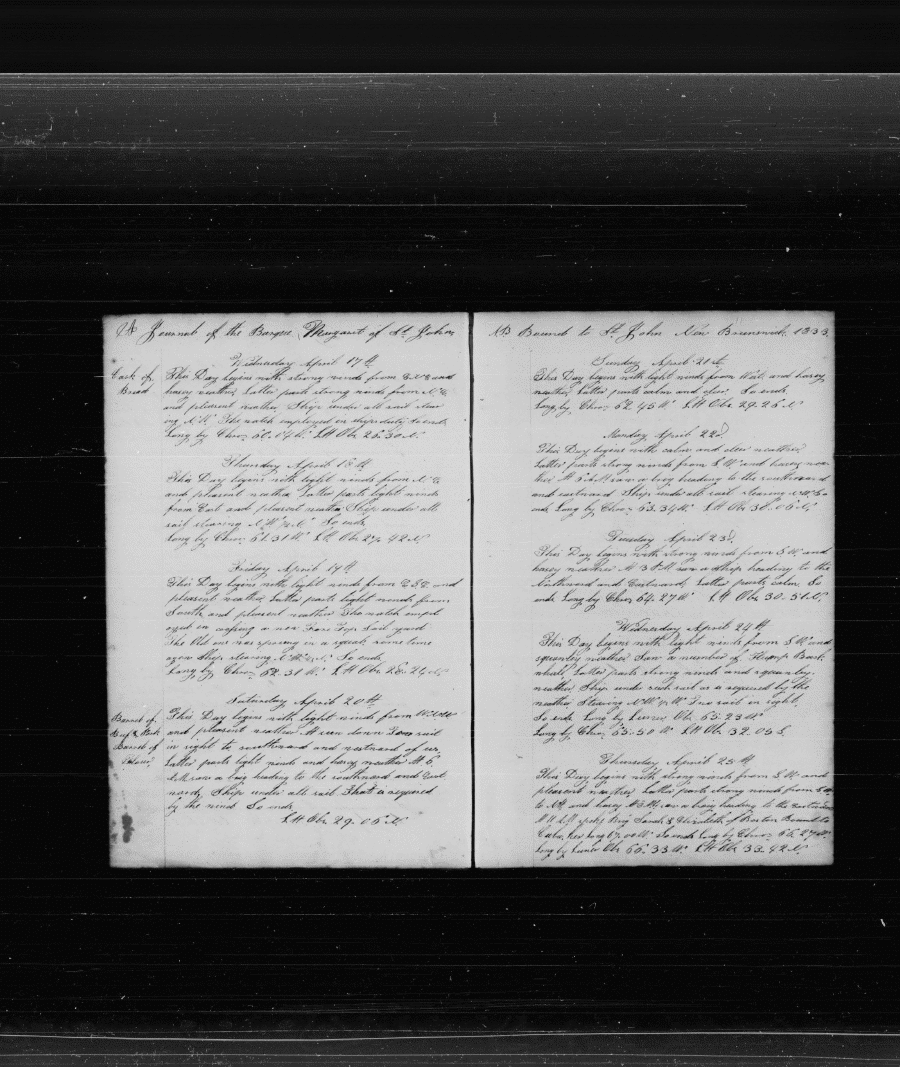 A Journal of the Barque Margaret of St John
Wednesday April 17th
Cask of
Bread
This Day begins with strong winds from ENE and
hasey weather Latter parts strong winds from N E
and pleasent weather Ship under all sail stear
ing N W. The watch employed in ship duty So ends
Long by Chro. Lt Obs 25.30 N
Thursday April 18th
This Day begins with light winds from N E
and pleasent weather Latter parts light winds
from East and pleasent weather Ship under all
sail stearing N W So ends
Long by Chro. 61.31 W. Lt Obs 27.42 N
Friday April 19th
This Day begins with light winds from ESE and
pleasent weather Latter parts light winds from
South and pleasent weather The watch empl
oyed in a new Fore Top Sail yard
The Old one was sprung in a squall some time
agow Ship stearing So ends
Long by Chro. 62.31 W. Lt Obs N
Saturday April 20th
Barrel of
Beef & Pork
Barrel of
This Day begins with light winds from
and pleasent weather sail
in sight to southward and westward of us
Latter parts light winds and hasey weather At 5
A.M. saw a barq heading to the southward and East
ward. Ship under all sail That is required
by the wind So ends
Lt Obs 29.05 N
NB Bound to St John New Brunswick 1833
Sunday April 21st
This Day begins with light winds from West and hasey
weather Latter parts calm and clear So ends
Long by Chro. 62.45 W Lt Obs 29.26 N
Monday April 22d
This Day begins with calm and clear weather
Latter parts strong winds from S W and hasey wea
ther At 5 A.M saw a barq heading to the southward
and eastward Ship under all sail stearing NW So
ends Long by Chro. 63.34 W. Lt Obs 30.06 N.
Tuesday April 23d.
This Day begins with strong winds from S W and
hasey weather At 3 P.M saw a Ship heading to the
Northward and Eastward, Latter parts calm, So
ends Long by Chro. 64.27 W. Lt Obs 30.51 N.
Wednesday April 24th
This Day begins with light winds from S W and
squawley weather Saw a number of Hump Back
whall, Latter parts strong winds and squawley
weather Ship under such sail as is required by the
weather Stearing N W One sail in sight,
So ends Long by Luner Obs 65.23 W
Long by Chro. 65.50 W. Lt Obs 32.05
Thursday April 25th
This Day begins with strong winds from S W and
pleasent weather Latter parts strong winds from
to and hasey saw a barq heading to the
At 11 A.M spoke Brig Sarah & Elizabeth of Boston Bound to
Cuba, her Long 67.00 W. So ends Long by Chro. 66.27 W
Long by Luner Obs 66.33 W. Lt Obs 33.42 N